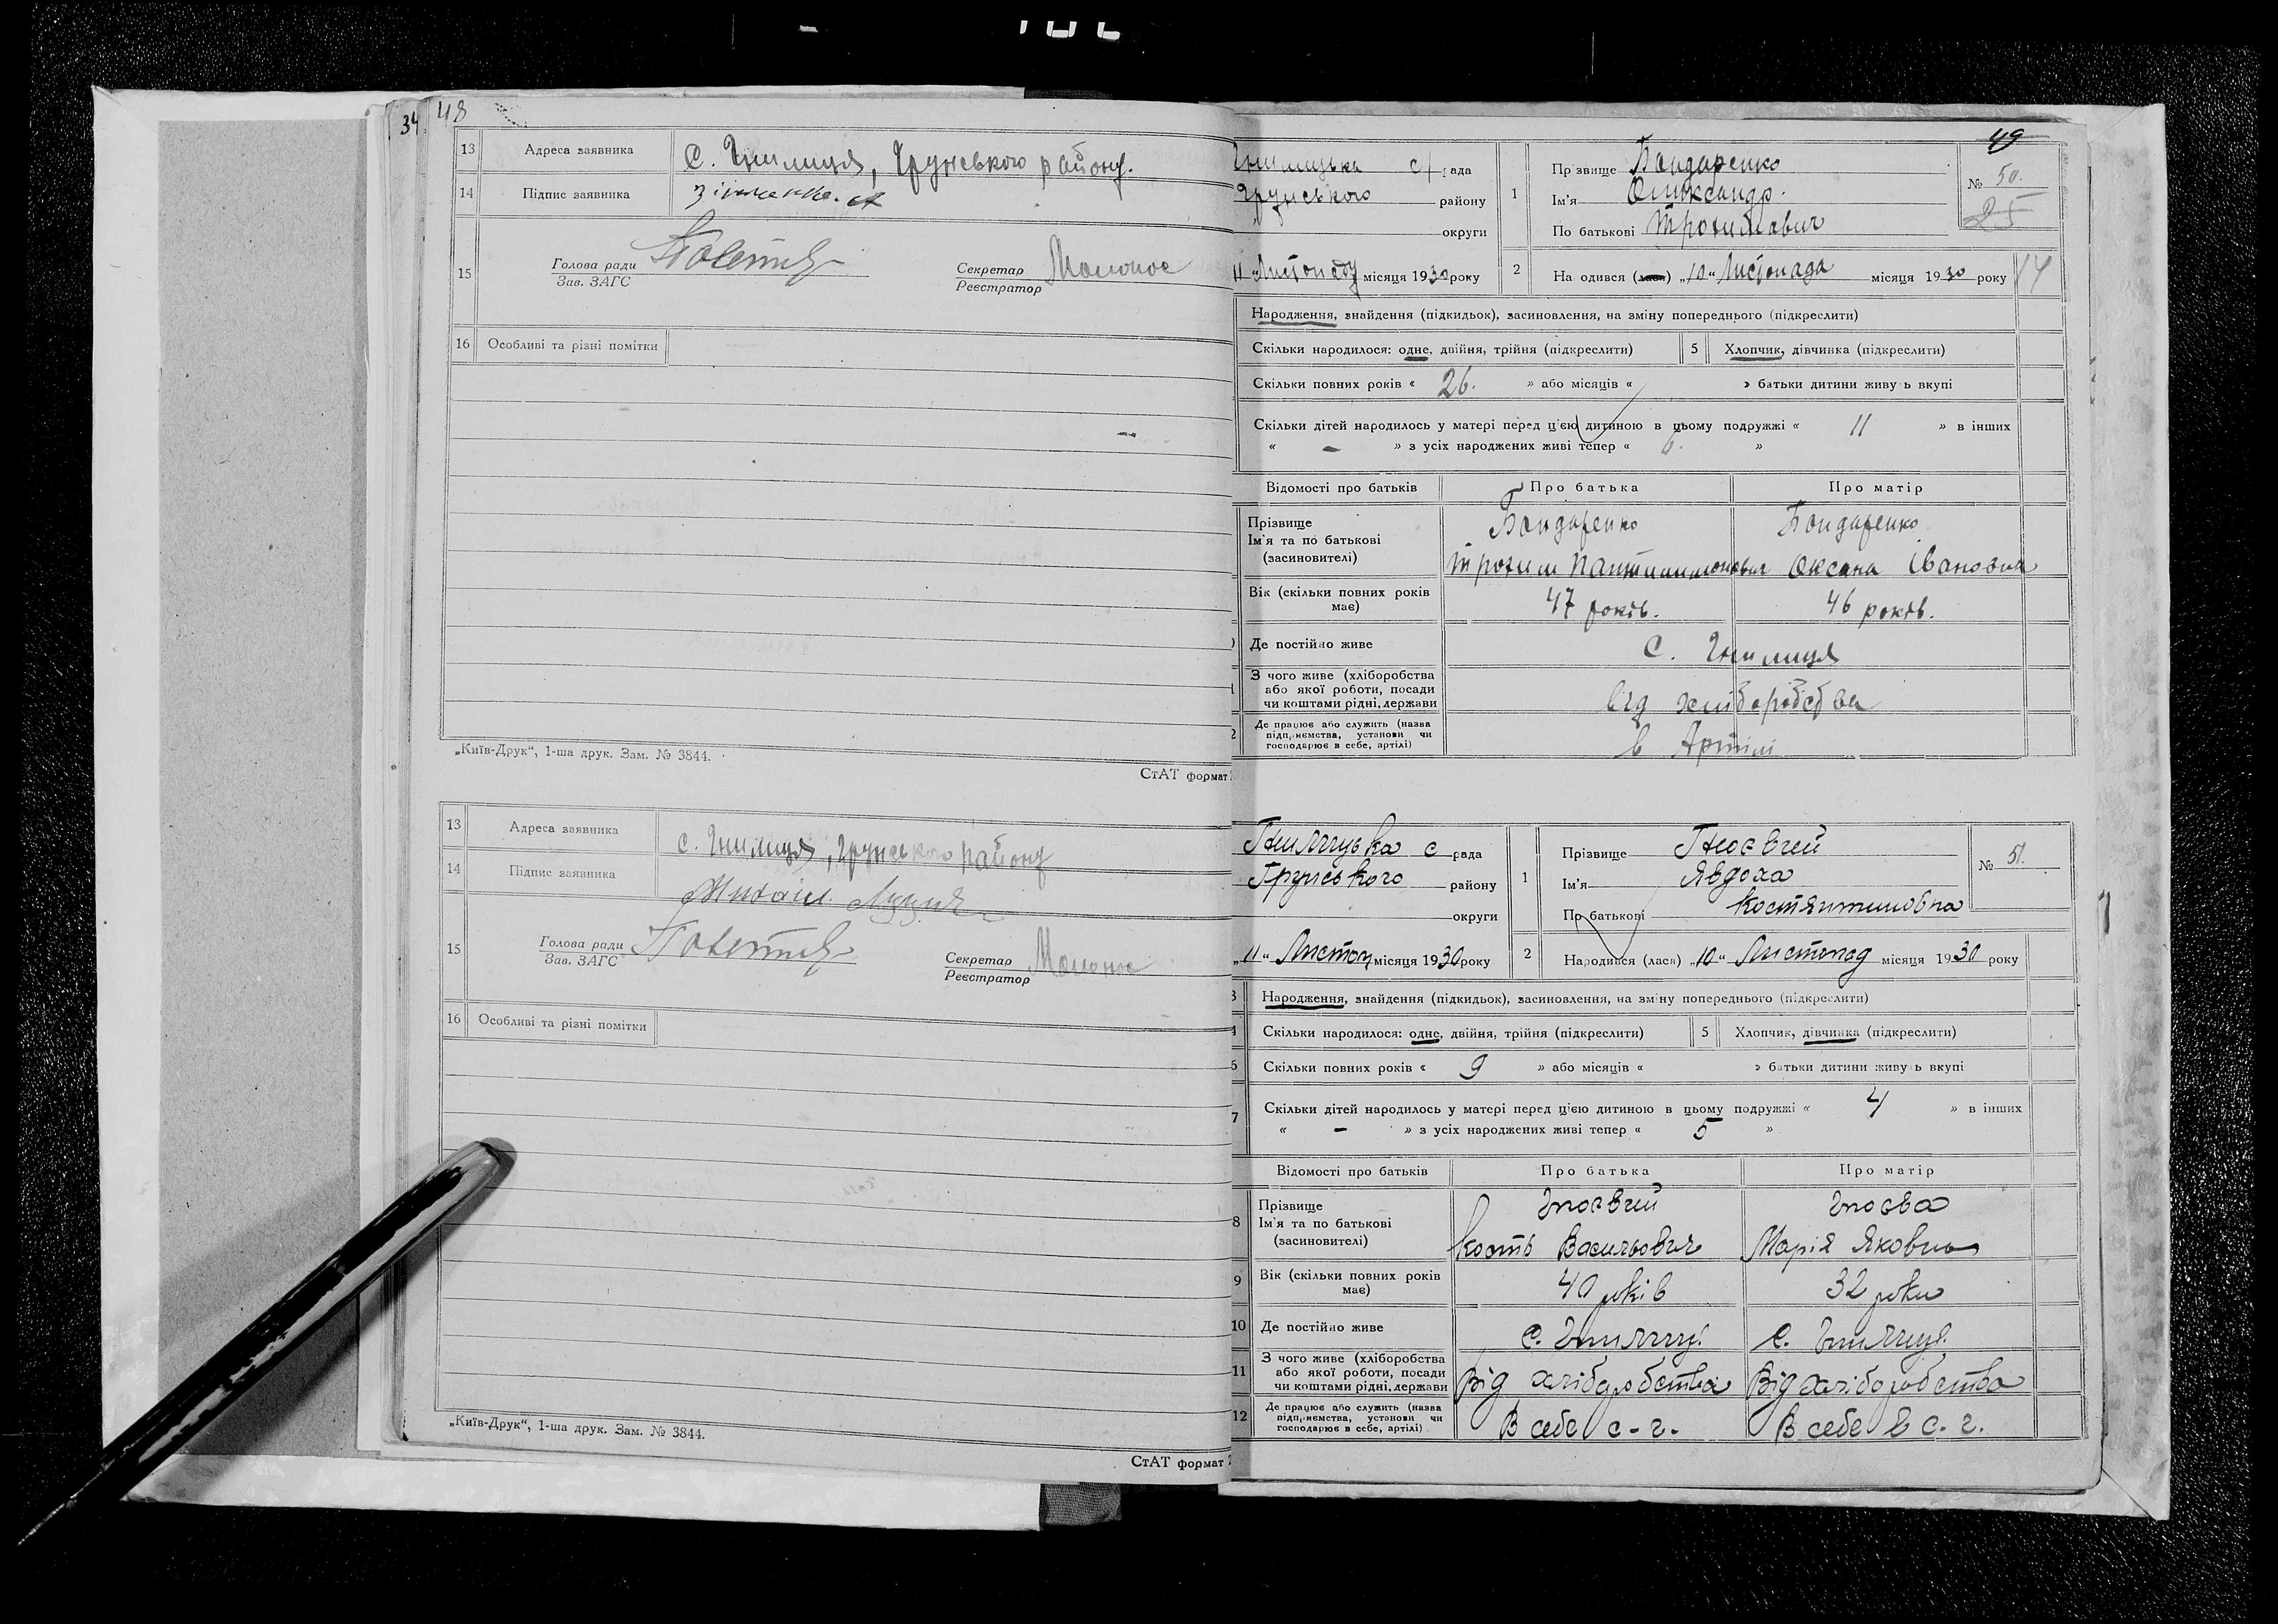 34 48
13 Адреса заявника С. Гнилиця, Грунського району.
14 Підпис заявника Зінченко. А
15 Голова ради
Зав. ЗАГС
Секретар
Реєстратор
16 Особливі та різні помітки
„Київ-Друк“, 1-ша друк. Зам. № 3844.
СтАТ формат
13 Адреса заявника с. Гнилиця, Грунського району
14 Підпис заявника Михаіл
15 Голова ради
Зав. ЗАГС
Секретар
Реєстратор
16 Особливі та різні помітки
„Київ-Друк“, 1-ша друк. Зам. № 3844.
СтАТ формат
49
Гнилицька с/рада
Грунського району
округи
11 „Листопаду місяця 1930 року
1 Прізвище Бондаренко
Ім'я Олександр
По батькові Трохимович
№ 50.
25
2 Народився (лася) „10“ Листопада місяця 1930 року
14
Народження, знайдення (підкидьок), засиновлення, на зміну попереднього (підкреслити)
Скільки народилося: одне, двійня, трійня (підкреслити) 5 Хлопчик, дівчинка (підкреслити)
Скільки повних років « 26. » або місяців « » батьки дитини живуть вкупі
Скільки дітей народилось у матері перед цією дитиною в цьому подружжі « 11 » в інших
« – » з усіх народжених живі тепер « 6. »
Відомості про батьків Про батька Про матір
Прізвище Бондаренко Бондаренко
Ім'я та по батькові
(засиновителі) Трохим Пантилимонович Оксана Івановна
Вік (скільки повних років має) 47 років. 46 років.
Де постійно живе С. Гнилиця
З чого живе (хліборобства
або якої роботи, посади
чи коштами рідні, держави від хліборобства
Де працює або служить (назва
підприємства, установи чи
господарює в себе, артілі) в Артілі
Гнилицька с рада
Грунського району
округи
„11“ Листоп місяця 1930 року
1 Прізвище Гноєвий
Ім'я Явдоха
По батькові Костянтиновна
№ 51.
2 Народився (лася) „10“ Листопад місяця 1930 року
3 Народження, знайдення (підкидьок), засиновлення, на зміну попереднього (підкреслити)
4 Скільки народилося: одне, двійня, трійня (підкреслити) 5 Хлопчик, дівчинка (підкреслити)
6 Скільки повних років « 9 » або місяців « » батьки дитини живуть вкупі
7 Скільки дітей народилось у матері перед цією дитиною в цьому подружжі « 4 » в інших
« – » з усіх народжених живі тепер « 5 »
Відомості про батьків Про батька Про матір
8 Прізвище Гноєвий Гноєва
Ім'я та по батькові
(засиновителі) Кость Васильович Марія Яковна
9 Вік (скільки повних років має) 40 років 32 роки
10 Де постійно живе С. Гнилиця С. Гнилиця
11 З чого живе (хліборобства
або якої роботи, посади
чи коштами рідні, держави Від хліборобства Від хліборобства
12 Де працює або служить (назва
підприємства, установи чи
господарює в себе, артілі) В себе с-г. В себе в с. г.